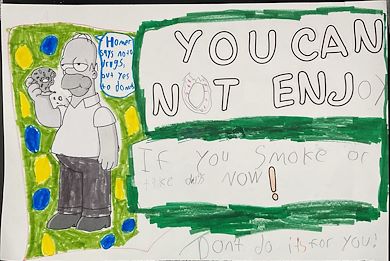 Homer
says no to
drugs,
but yes
to donut
YOU CAN
NOT ENJOY
If you smoke or
take NOW!
Dont do it for you!